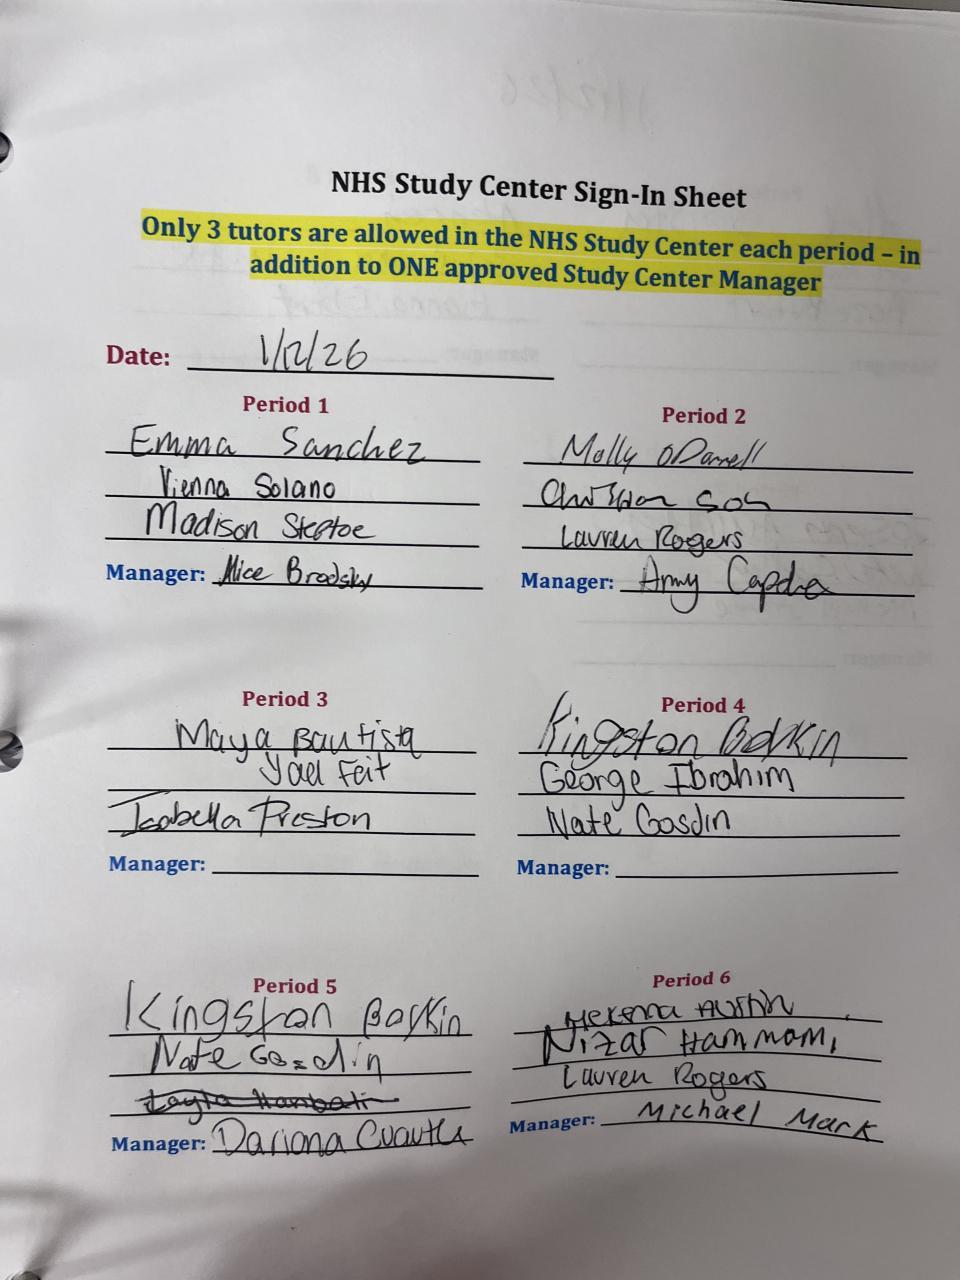 NHS Study Center Sign-In Sheet
Only 3 tutors are allowed in the NHS Study Center each period – in
addition to ONE approved Study Center Manager
Date: 1/12/26
Period 1
Emma Sanchez
Vienna Solano
Madison Steptoe
Manager: Alice Brodsky
Period 2
Molly
Lauren Rogers
Manager:
Period 3
Maya Bautista
Yael Feit
Isabella Preston
Manager:
Period 4
Kingston
George Ibrahim
Nate Gosdin
Manager:
Period 5
Kingston
Nate Gosdin
Manager: Dariana
Period 6
Mekenna Austin
Nizar Hammami
Lauren Rogers
Manager: Michael Mark